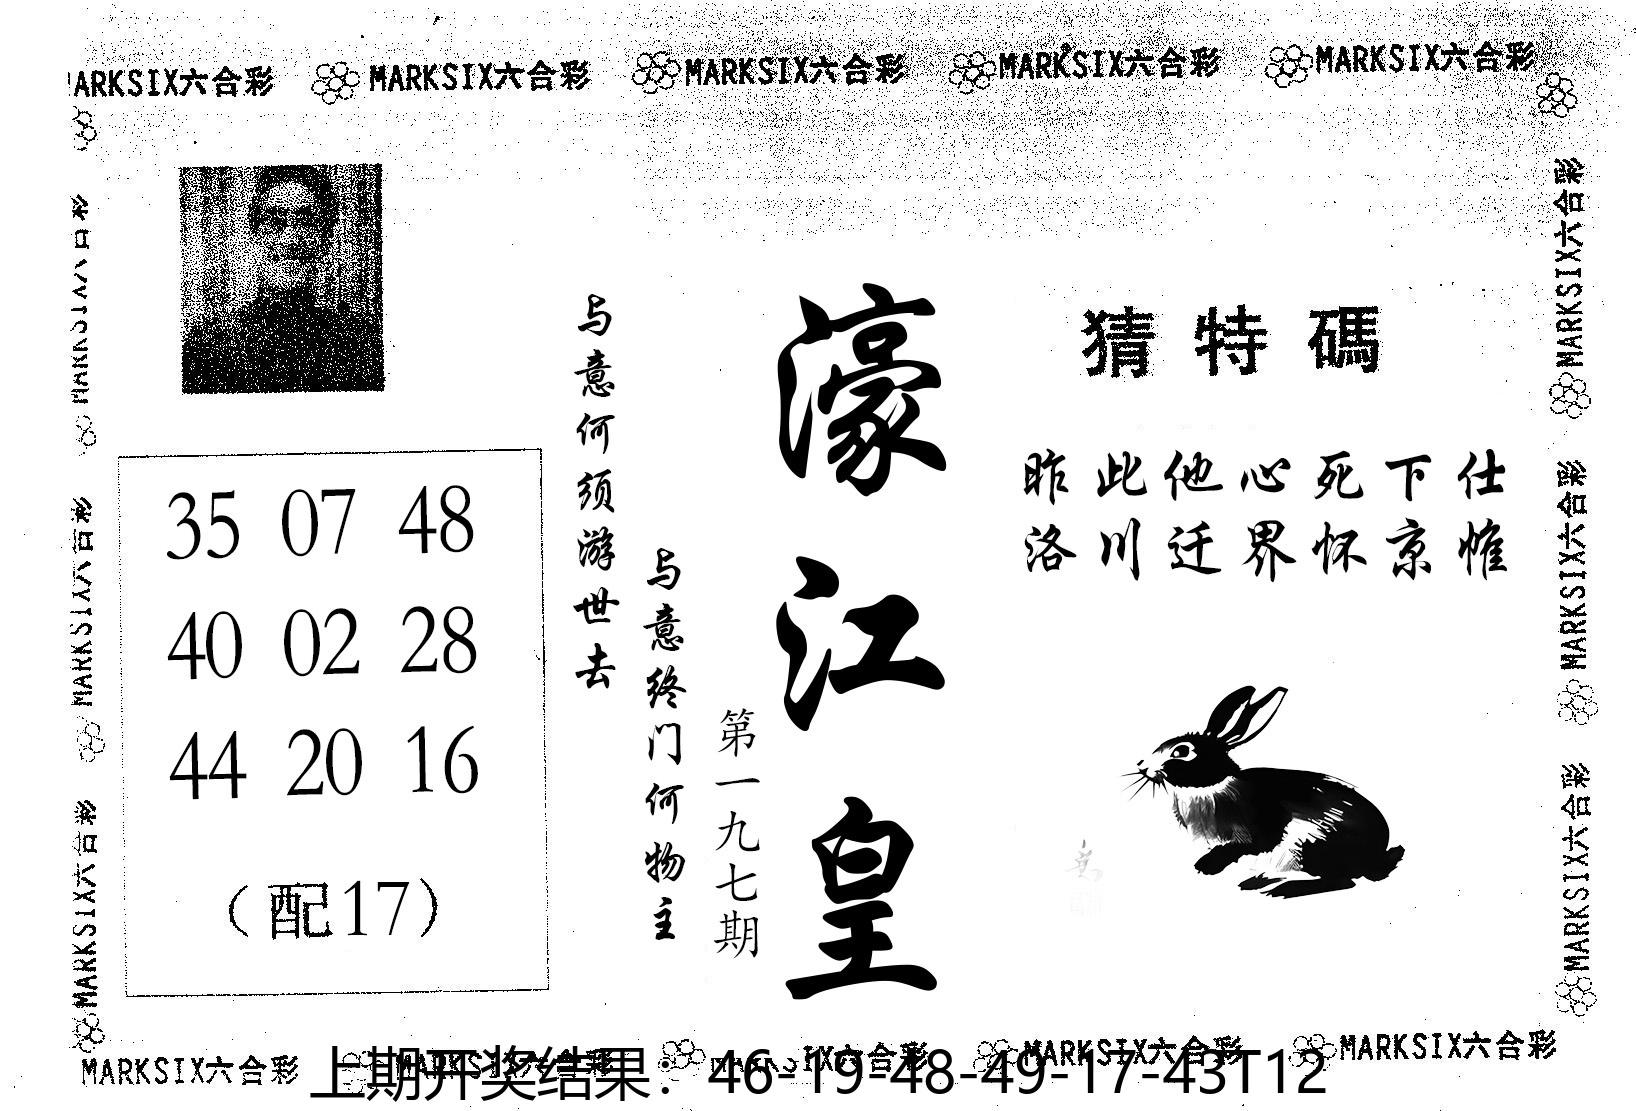 MARKSIX六合彩 MARKSIX六合彩 MARKSIX六合彩 MARKSIX六合彩 MARKSIX六合彩
猜特碼
昨此他心死下仕
洛川迁界怀京惟
濠江皇
第一九七期
与意何须游世去
与意终门何物主
35 07 48
40 02 28
44 20 16
(配17)
MARKSIX六合彩
MARKSIX六合彩
MARKSIX六合彩
MARKSIX六合彩
MARKSIX六合彩
MARKSIX六合彩
MARKSIX六合彩 MARKSIX六合彩 MARKSIX六合彩 MARKSIX六合彩 MARKSIX六合彩
上期开奖结果：46-19-48-49-17-43T12